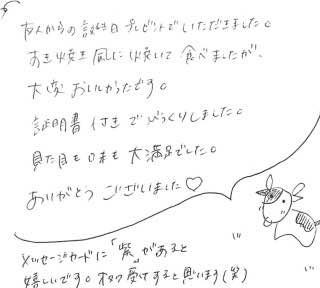 友人からの誕生日プレゼントでいただきました。
すき焼き風に焼いて食べましたが、
大変おいしかったです。
証明書付きでびっくりしました。
見た目も味も大満足でした。
ありがとうございました♡
メッセージカードに「紫」があると
嬉しいです。オタク受けすると思います(笑)